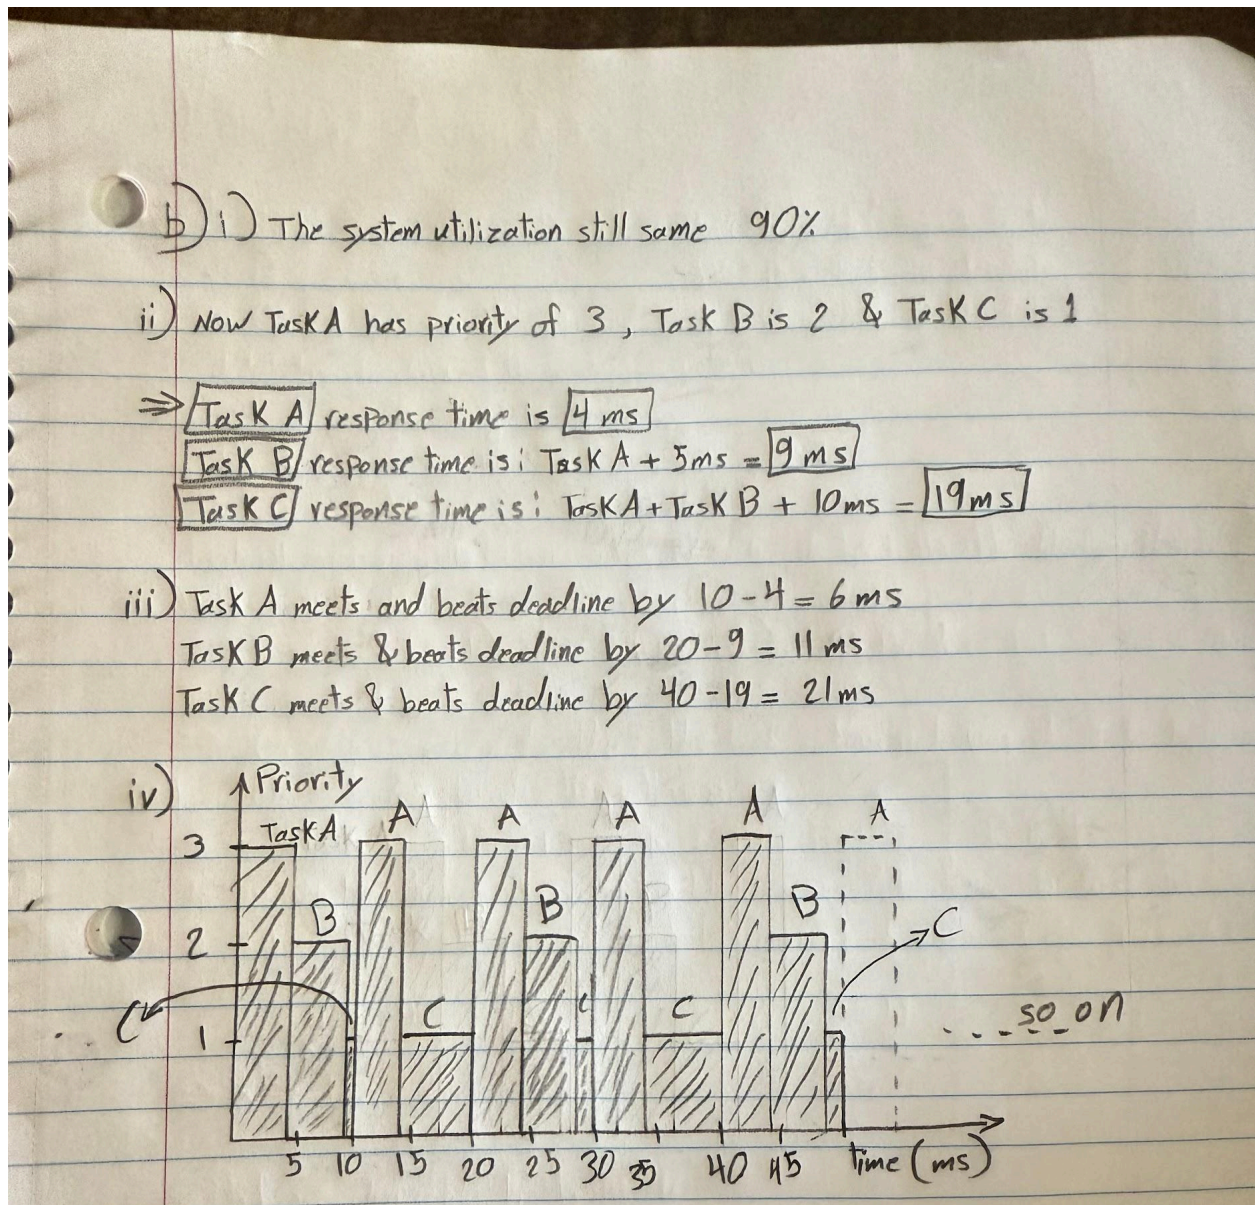 b) i) The system utilization still same 90%
ii) Now Task A has priority of 3, Task B is 2 & Task C is 1
⇒ Task A response time is 4 ms
Task B response time is: Task A + 5ms = 9 ms
Task C response time is: Task A + Task B + 10ms = 19ms
iii) Task A meets and beats deadline by 10-4 = 6ms
Task B meets & beats deadline by 20-9 = 11 ms
Task C meets & beats deadline by 40-19 = 21ms
iv) Priority
Task A A A A A A
3
B B B
2
C
C C C C
1
so on
5 10 15 20 25 30 35 40 45 time (ms)